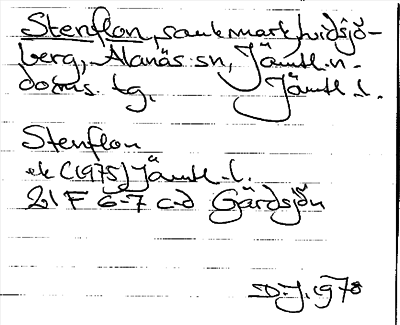 Stenflon, sankmark, vidsjö-
berg, Alanäs sn, Jämtl. n.
doms. tg, Jämtl. l.
Stenflon
ek C (1975) Jämtl. l.
21 F 6-7 c-d Gärdsjön
D.J. 1978